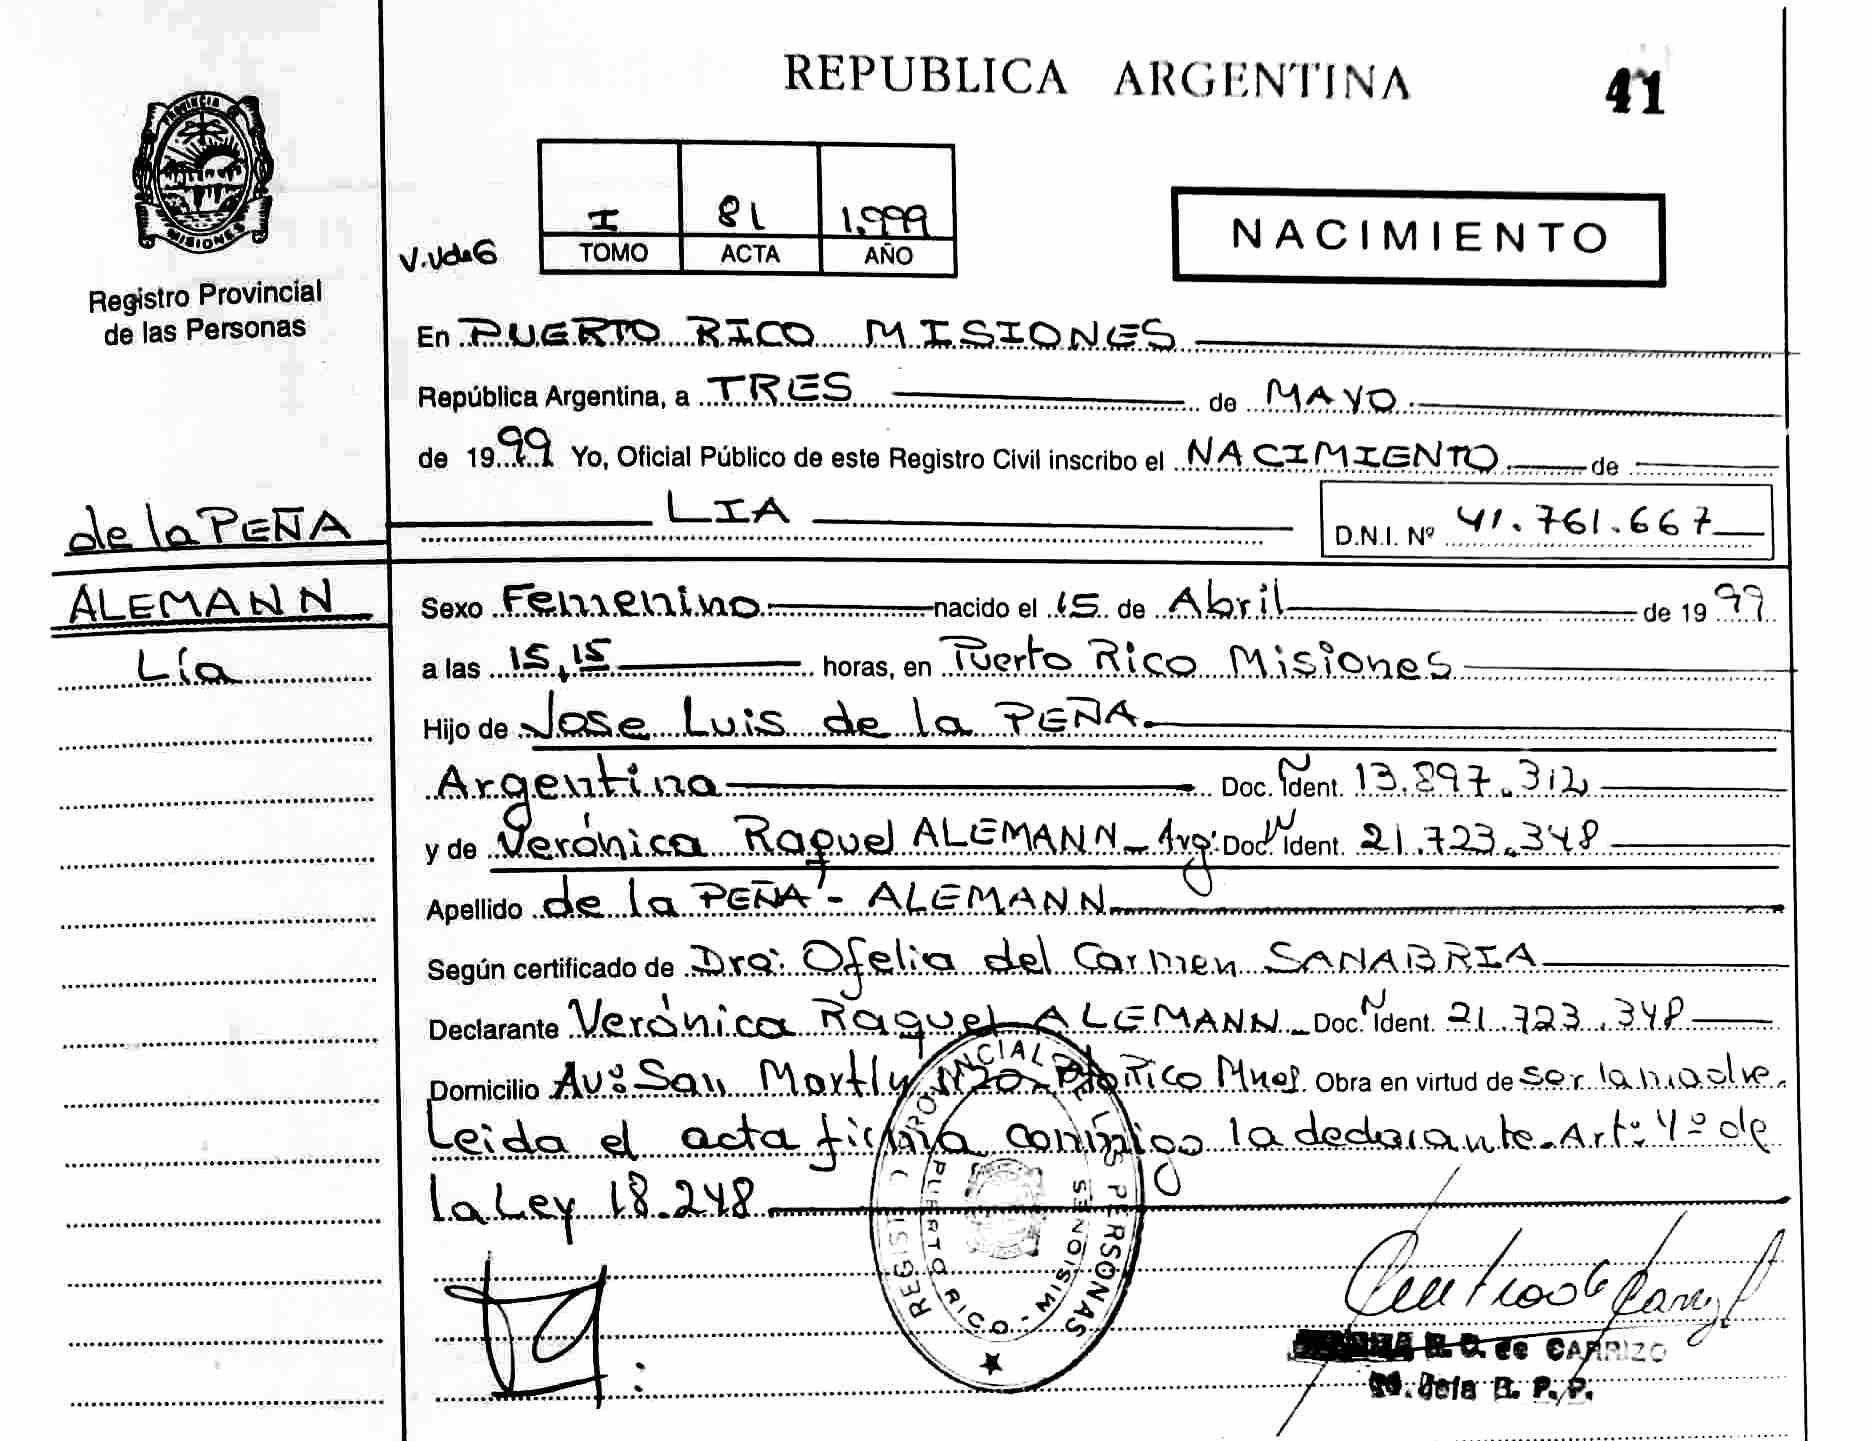 REPUBLICA ARGENTINA
41
PROVINCIA
MISIONES
Registro Provincial
de las Personas
I 81 1.999
TOMO ACTA AÑO
NACIMIENTO
En PUERTO RICO MISIONES
República Argentina, a TRES de MAYO
de 1999 Yo, Oficial Público de este Registro Civil inscribo el NACIMIENTO de
LIA
D.N.I. Nº 41.761.667
de la PEÑA
ALEMANN
Lía
Sexo Femenino nacido el 15 de Abril de 1999
a las 15,15 horas, en Puerto Rico Misiones
Hijo de Jose Luis de la PEÑA
Argentino Doc. Ident. 13.897.312
y de Verónica Raquel ALEMANN Arg: Doc. Ident. 21.723.348
Apellido de la PEÑA - ALEMANN
Según certificado de Dra: Ofelia del Carmen SANABRIA
Declarante Verónica Raquel ALEMANN Doc. Ident. 21.723.348
Domicilio Av: San Martín 1120 Pto Rico Mnes. Obra en virtud de ser la madre.
Leida el acta firma conmigo la declarante. Art: 4º de
la Ley 18.248
REGISTRO PROVINCIAL DE LAS PERSONAS
PUERTO RICO - MISIONES
de CARRIZO
R. P. P.